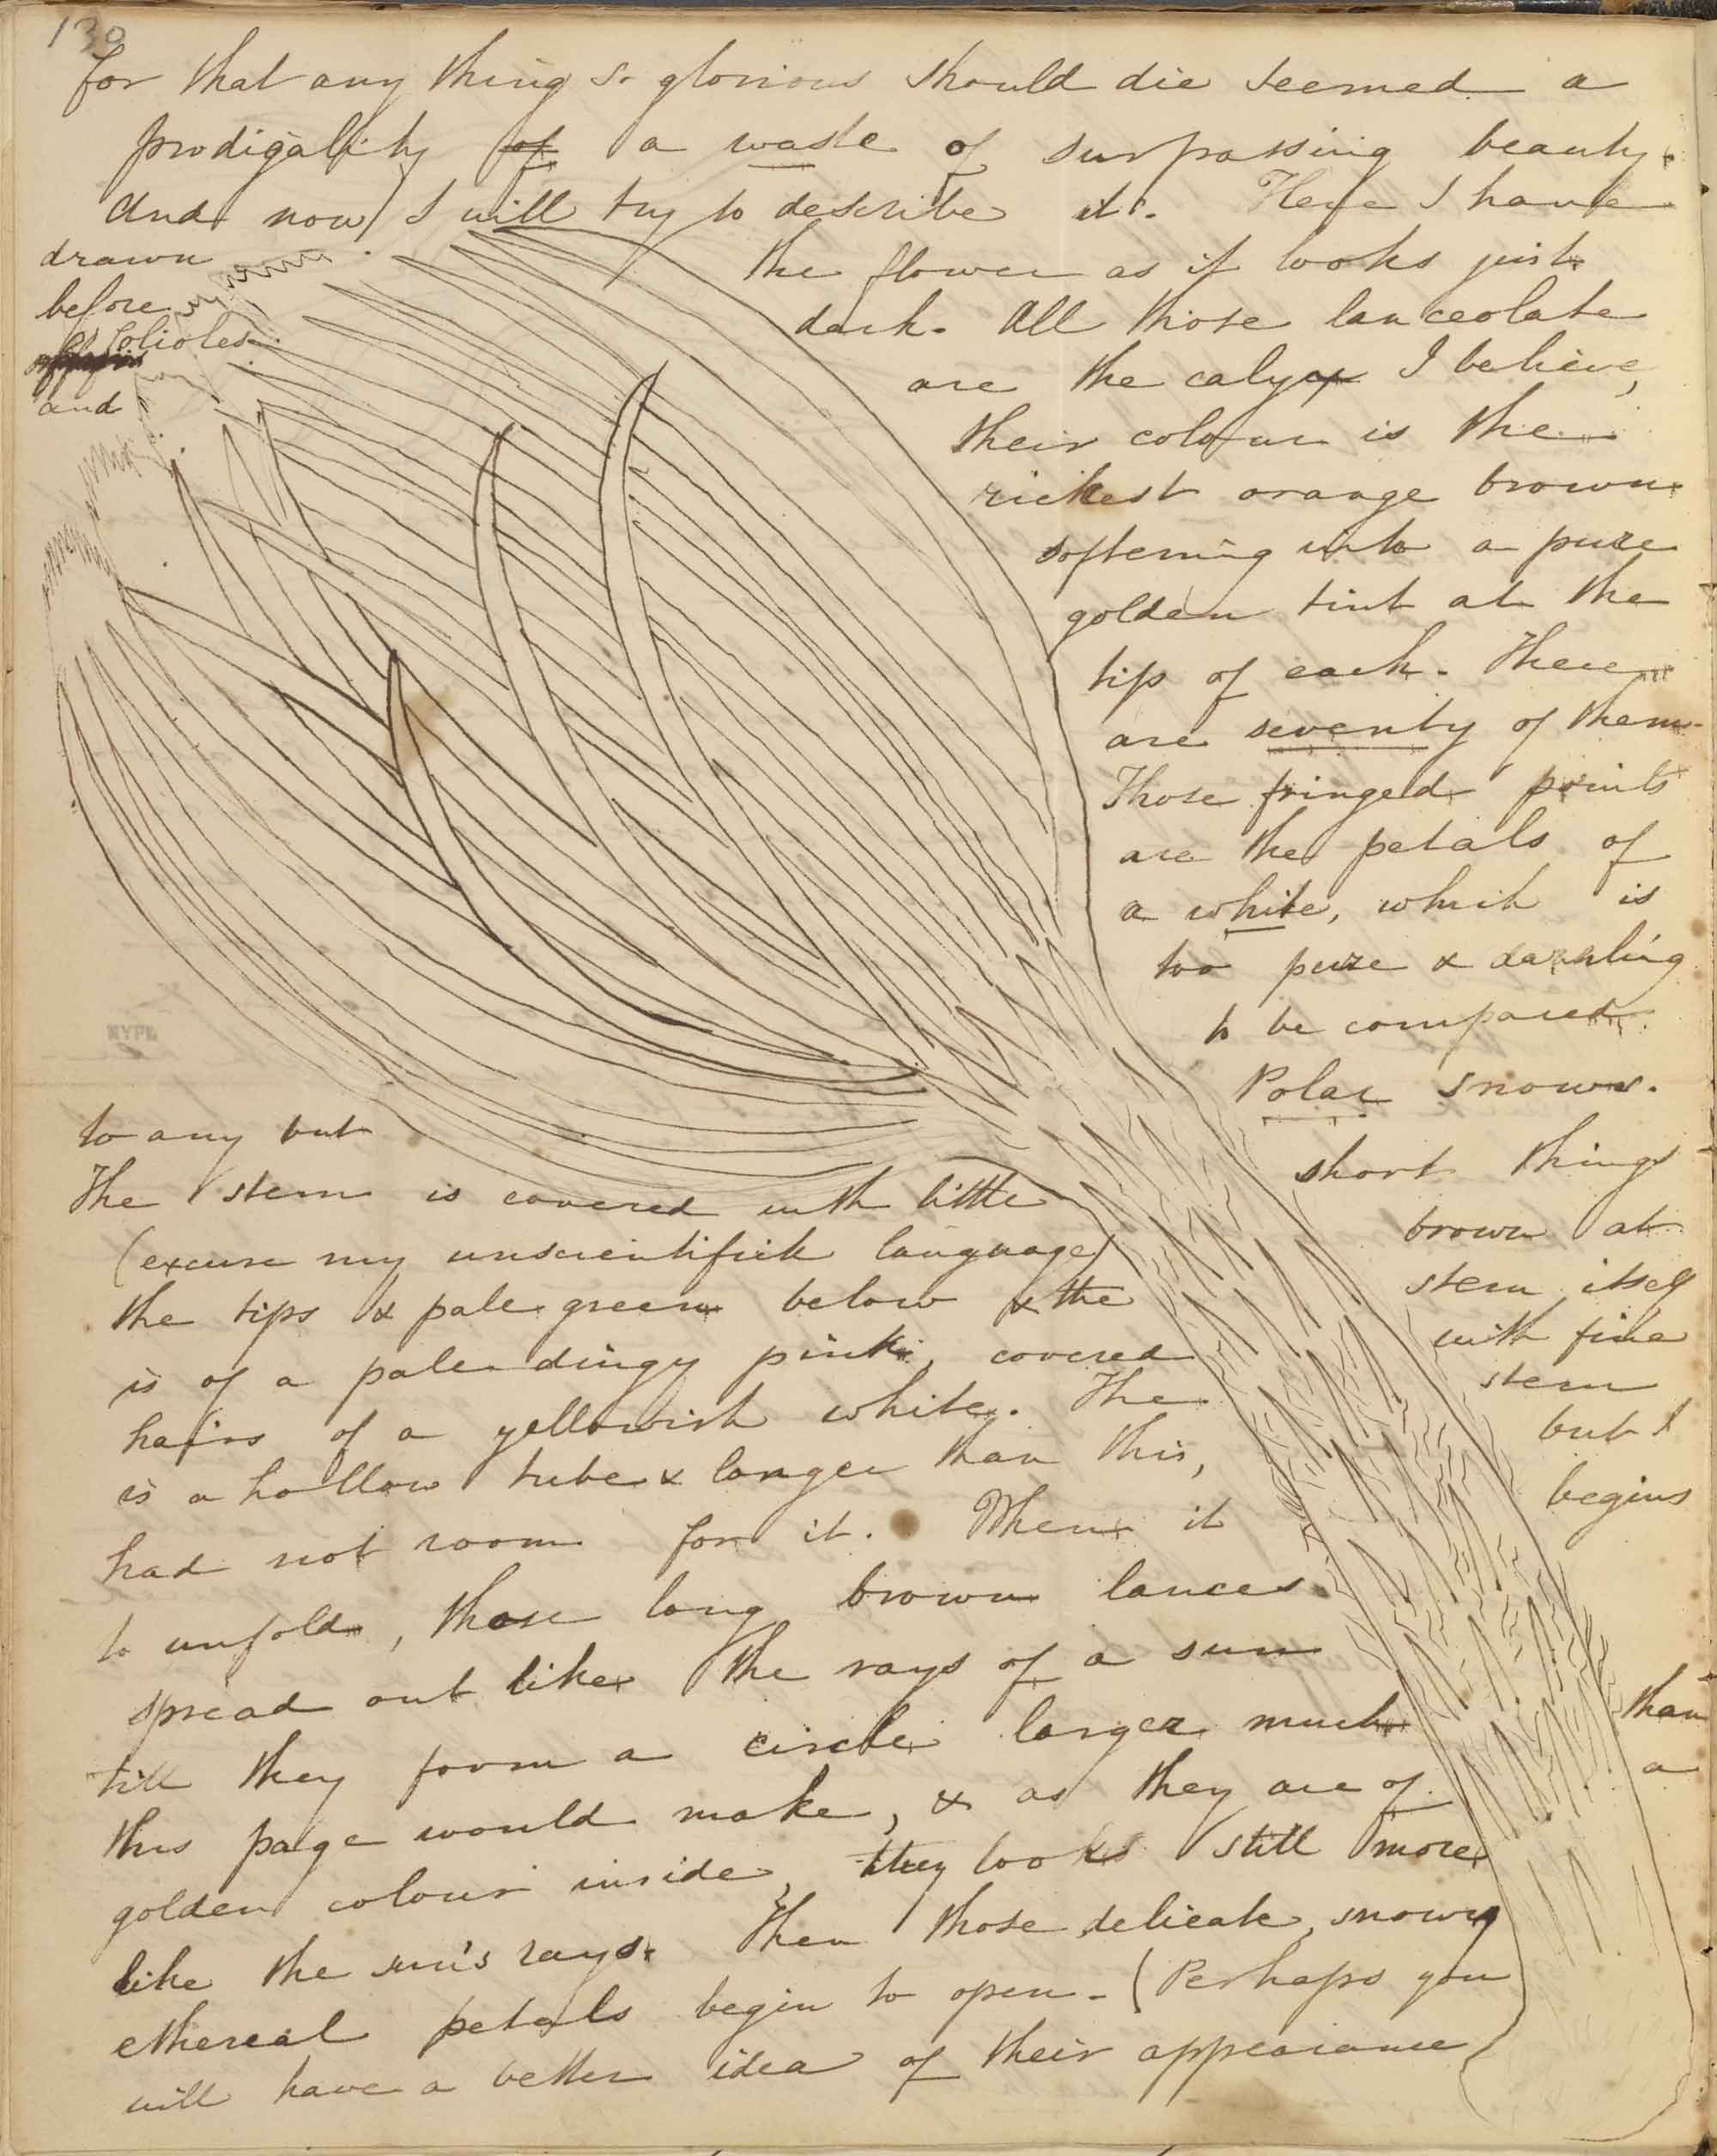 130
for that any thing so glorious should die seemed a
prodigality of a waste of surpassing beauty.
And now I will try to describe it. Here I have
drawn the flower as it looks just
before dark. All those lanceolate
folioles
are the calyx I believe,
and their colour is the
richest orange brown
softening into a pure
golden tint at the
tips of each. There
are seventy of them.
Those fringed points
are the petals of
a white, which is
too pure & dazzling
to be compared
to any but Polar snows.
The stem is covered with little short things
(excuse my unscientifick language) brown at
the tips & pale green below & the stem itself
is of a pale dingy pink, covered with fine
hairs of a yellowish white. The stem
is a hollow tube & longer than this, but I
had not room for it. When it begins
to unfold, those long brown lances
spread out like the rays of a sun
till they form a circle larger much than
this page would make, & as they are of a
golden colour inside, they look still more
like the sun's rays. Then those delicate, snowy
ethereal petals begin to open. (Perhaps you
will have a better idea of their appearance
NYPL